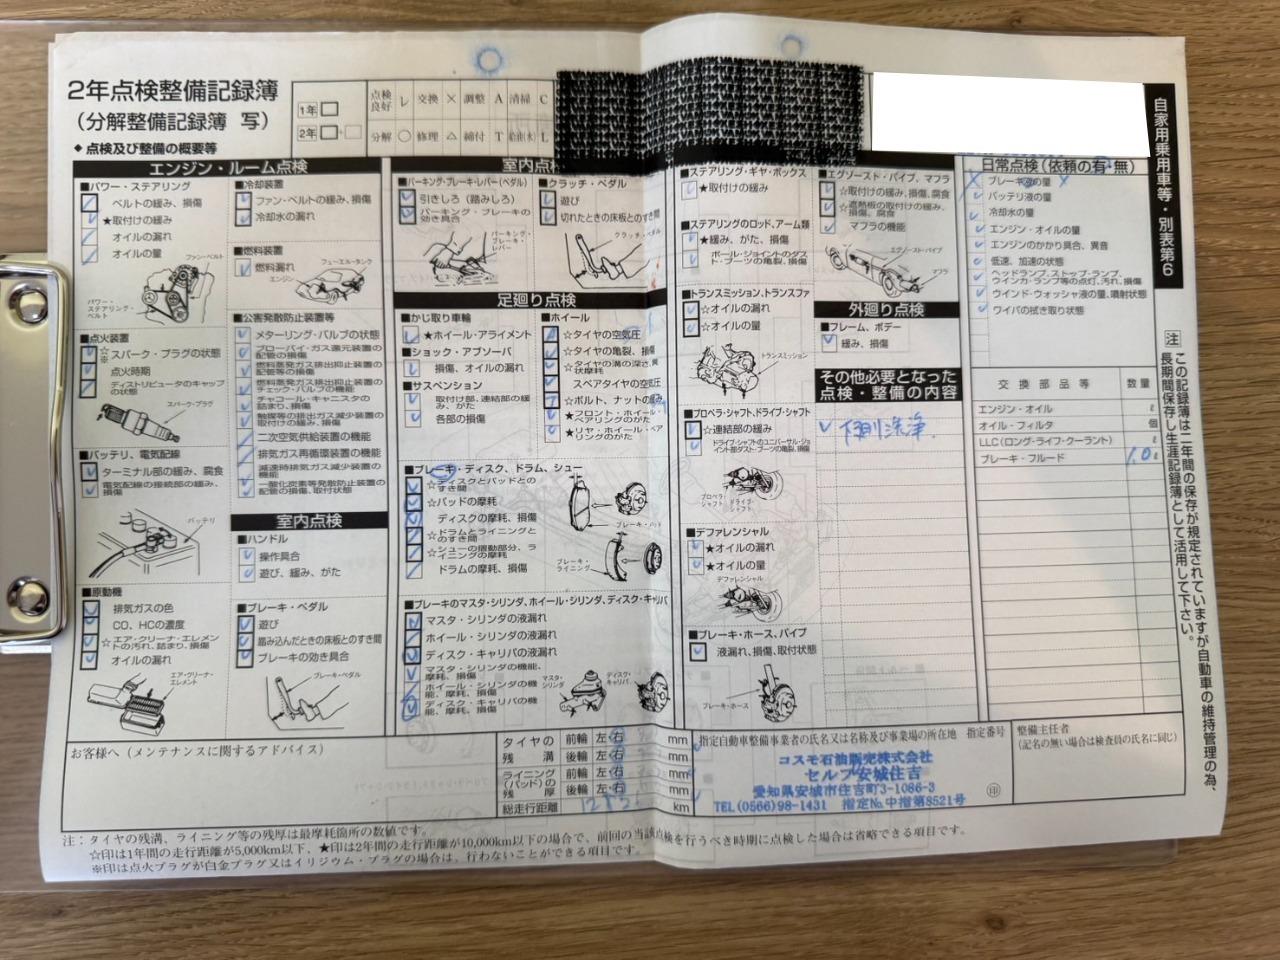 2年点検整備記録簿
(分解整備記録簿 写)
◆点検及び整備の概要等
1年
2年
点検良好 レ 交換 × 調整 A 清掃 C
分解 ○ 修理 △ 締付 T 給油(水) L
自家用乗用車等・別表第6
エンジン・ルーム点検
■パワー・ステアリング
ベルトの緩み、損傷
★取付けの緩み
オイルの漏れ
オイルの量
ファン・ベルト
パワー・ステアリング・ベルト
■点火装置
☆※スパーク・プラグの状態
点火時期
ディストリビュータのキャップの状態
スパーク・プラグ
■バッテリ、電気配線
ターミナル部の緩み、腐食
電気配線の接続部の緩み、損傷
バッテリ
■原動機
排気ガスの色
CO、HCの濃度
☆エア・クリーナ・エレメントの汚れ、詰まり、損傷
オイルの漏れ
エア・クリーナ・エレメント
■冷却装置
ファン・ベルトの緩み、損傷
冷却水の漏れ
■燃料装置
燃料漏れ
フューエル・タンク
エンジン
■公害発散防止装置等
メターリング・バルブの状態
ブローバイ・ガス還元装置の配管の損傷
燃料蒸発ガス排出抑止装置の配管等の損傷
燃料蒸発ガス排出抑止装置のチェック・バルブの機能
チャコール・キャニスタの詰まり、損傷
触媒等の排出ガス減少装置の取付けの緩み、損傷
二次空気供給装置の機能
排気ガス再循環装置の機能
減速時排気ガス減少装置の機能
一酸化炭素等発散防止装置の配管の損傷、取付状態
室内点検
■ハンドル
操作具合
遊び、緩み、がた
■ブレーキ・ペダル
遊び
踏み込んだときの床板とのすき間
ブレーキの効き具合
ブレーキ・ペダル
室内点
■パーキング・ブレーキ・レバー(ペダル)
引きしろ(踏みしろ)
パーキング・ブレーキの効き具合
パーキング・ブレーキ・レバー
■クラッチ・ペダル
遊び
切れたときの床板とのすき間
クラッチ・ペダル
足廻り点検
■かじ取り車輪
★ホイール・アライメント
■ショック・アブソーバ
損傷、オイルの漏れ
■サスペンション
取付部、連結部の緩み、がた
各部の損傷
■ホイール
☆タイヤの空気圧
☆タイヤの亀裂、損傷
☆タイヤの溝の深さ、異状摩耗
スペアタイヤの空気圧
☆ボルト、ナットの緩み
★フロント・ホイール・ベアリングのがた
★リヤ・ホイール・ベアリングのがた
■ブレーキ・ディスク、ドラム、シュー
☆ディスクとパッドとのすき間
☆パッドの摩耗
ディスクの摩耗、損傷
☆ドラムとライニングとのすき間
☆シューの摺動部分、ライニングの摩耗
ドラムの摩耗、損傷
ブレーキ・パッド
ブレーキ・ライニング
■ブレーキのマスタ・シリンダ、ホイール・シリンダ、ディスク・キャリパ
マスタ・シリンダの液漏れ
ホイール・シリンダの液漏れ
ディスク・キャリパの液漏れ
マスタ・シリンダの機能、摩耗、損傷
ホイール・シリンダの機能、摩耗、損傷
ディスク・キャリパの機能、摩耗、損傷
マスタ・シリンダ
ディスク・キャリパ
■ステアリング・ギヤ・ボックス
★取付けの緩み
■ステアリングのロッド、アーム類
★緩み、がた、損傷
ボール・ジョイントのダスト・ブーツの亀裂、損傷
■トランスミッション、トランスファ
☆オイルの漏れ
☆オイルの量
トランスミッション
■プロペラ・シャフト、ドライブ・シャフト
☆連結部の緩み
ドライブ・シャフトのユニバーサル・ジョイント部ダスト・ブーツの亀裂、損傷
プロペラ・シャフト
ドライブ・シャフト
■デファレンシャル
★オイルの漏れ
★オイルの量
デファレンシャル
■ブレーキ・ホース、パイプ
液漏れ、損傷、取付状態
ブレーキ・ホース
■エグゾースト・パイプ、マフラ
☆取付けの緩み、損傷、腐食
☆遮熱板の取付けの緩み、損傷、腐食
マフラの機能
エグゾースト・パイプ
マフラ
外廻り点検
■フレーム、ボデー
緩み、損傷
その他必要となった点検・整備の内容
下廻洗浄
日常点検(依頼の有・無)
ブレーキ液の量
バッテリ液の量
冷却水の量
エンジン・オイルの量
エンジンのかかり具合、異音
低速、加速の状態
ヘッドランプ、ストップ・ランプ、ウインカ・ランプ等の点灯、汚れ、損傷
ウインド・ウォッシャ液の量、噴射状態
ワイパの拭き取り状態
交換部品等 数量
エンジン・オイル ℓ
オイル・フィルタ 個
LLC(ロング・ライフ・クーラント) ℓ
ブレーキ・フルード 1.0ℓ
注 この記録簿は二年間の保存が規定されていますが自動車の維持管理の為、
長期間保存し生涯記録簿として活用して下さい。
お客様へ(メンテナンスに関するアドバイス)
タイヤの残溝 前輪 左・右 mm
後輪 左・右 mm
ライニング(パッド)の残厚 前輪 左・右 mm
後輪 左・右 mm
総走行距離 km
指定自動車整備事業者の氏名又は名称及び事業場の所在地 指定番号
コスモ石油販売株式会社
セルフ安城住吉
愛知県安城市住吉町3-1086-3
TEL(0566)98-1431 指定No.中指第8521号
印
整備主任者
(記名の無い場合は検査員の氏名に同じ)
注:タイヤの残溝、ライニング等の残厚は最摩耗箇所の数値です。
☆印は1年間の走行距離が5,000km以下、★印は2年間の走行距離が10,000km以下の場合で、前回の当該点検を行うべき時期に点検した場合は省略できる項目です。
※印は点火プラグが白金プラグ又はイリジウム・プラグの場合は、行わないことができる項目です。